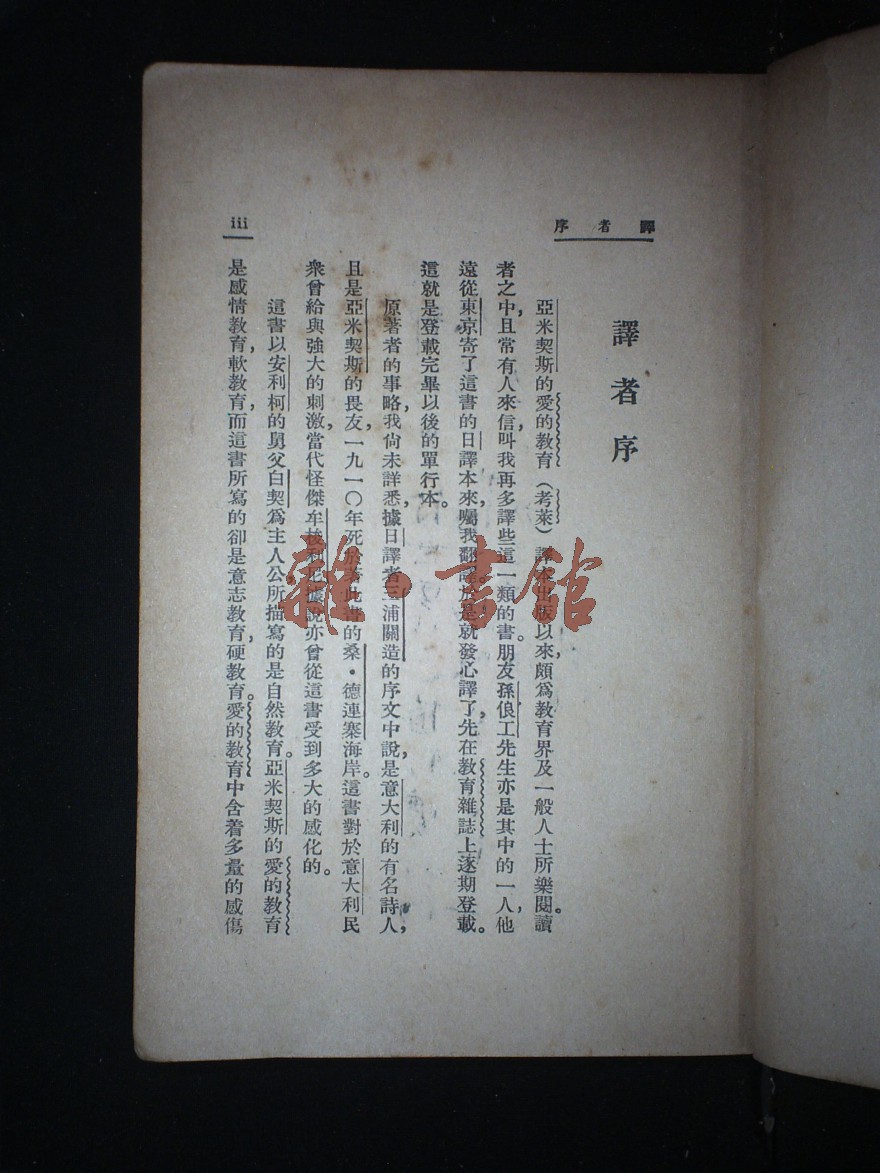 譯者序
iii
譯者序
亞米契斯的愛的教育（考萊）譯本出版以來，頗爲教育界及一般人士所樂閱。讀
者之中，且常有人來信，叫我再多譯些這一類的書。朋友孫俍工先生亦是其中的一人，他
遠從東京寄了這書的日譯本來，囑我翻譯。於是就發心譯了，先在教育雜誌上逐期登載。
這就是登載完畢以後的單行本。
原著者的事略，我尙未詳悉，據日譯者三浦關造的序文中說，是意大利的有名詩人，
且是亞米契斯的畏友，一九一〇年死於著此書的桑・德連寨海岸。這書對於意大利民
衆曾給與強大的刺激，當代怪傑牟梭利尼據說亦曾從這書受到多大的感化的。
這書以安利柯的舅父白契爲主人公，所描寫的是自然教育。亞米契斯的愛的教育
是感情教育，軟教育，而這書所寫的卻是意志教育，硬教育。愛的教育中含着多量的感傷
雜・書館